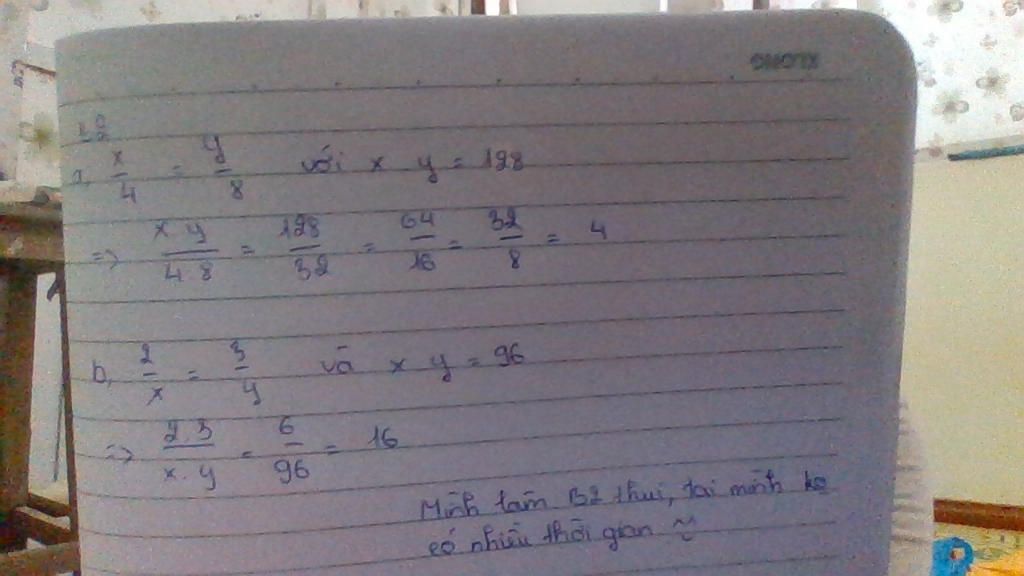 XLONG
B2
a, x/4 = y/8 với x y = 128
=> x y/4 8 = 128/32 = 64/16 = 32/8 = 4
b, 2/x = 3/y và x y = 96
=> 2.3/x.y = 6/96 = 16
Mình làm B2 thui, tại mình ko
có nhiều thời gian ~